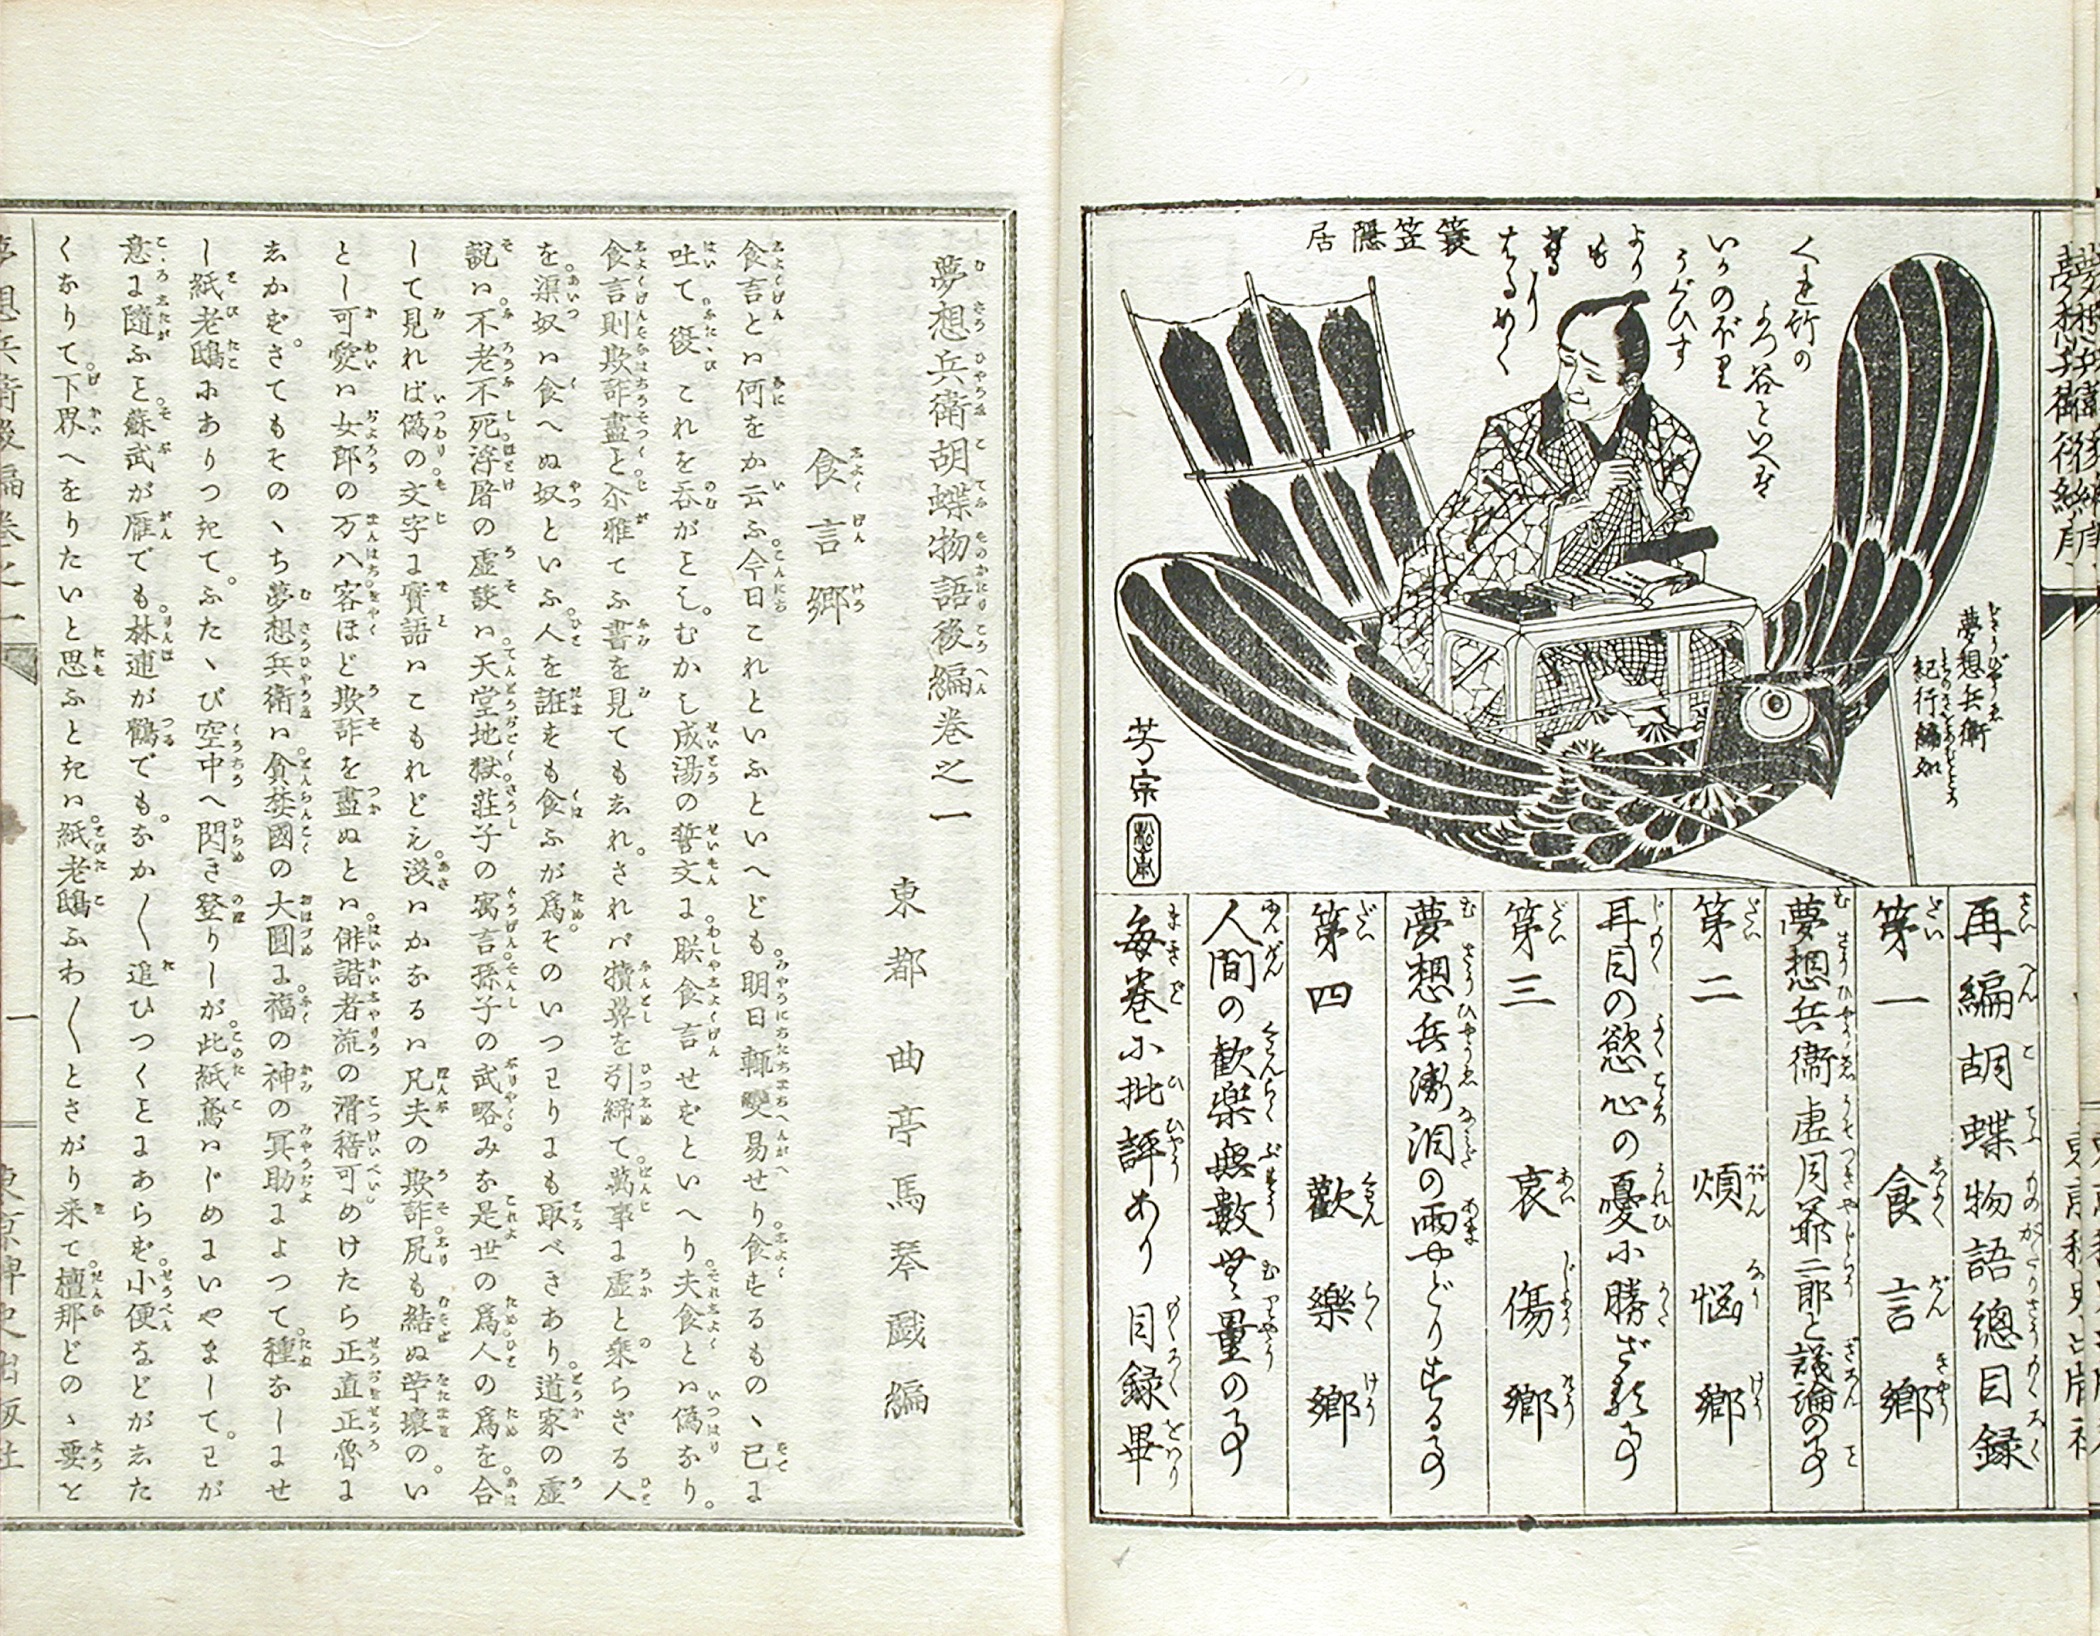 簑笠隠居
くれ竹の
夢想兵衛
紀行編
芳宗
再編胡蝶物語總目録
第一 食言郷
夢想兵衞虚月爺二郎と議論の事
第二 煩悩郷
耳目の慾心の憂小勝ざる事
第三 哀傷郷
夢想兵衛泪の雨やどりする事
第四 歡樂郷
人間の歓楽無数無量の事
毎巻小批評あり 目録畢
夢想兵衛胡蝶物語後編巻之一
東都 曲亭馬琴戯編
食言郷
食言とハ何をか云ふ今日これといふといへども。明日輒變易せり食するもの、已に
吐て。後これを呑がごとし。むかし成湯の誓文に。朕食言せずといへり。夫食とハ偽なり。
食言則欺詐盡と尓雅てふ書を見てもしれ。されバ犢鼻を引締て。萬事に虚と乗らざる人
を。渠奴ハ食へぬ奴といふ。人を誑すも食ふが爲。そのいつわりにも取べきあり。道家の虚
説ハ。不老不死。浮屠の虚談ハ。天堂地獄。莊子の寓言。孫子の武略。みな是世の爲。人の爲を。合
して見れば偽の。文字に實語ハこもれども。淺ハかなるハ凡夫の欺詐。尻も結ぬ苧環の。い
とし可愛ハ女郎の万八。客ほど欺詐を盡ぬとハ。俳諧者流の滑稽。可めけたら正直正魯に
しかず。さてもその、ち夢想兵衛ハ。貪婪國の大圓に。福の神の冥助によつて。種なしませ
し紙老鴟にありつきて。ふたゝび空中へ閃き登りしが。此紙鳶ハじめにいやまして。わが
意に隨ふこと。蘇武が雁でも。林逋が鶴でも。なか〱追ひつくことにあらず。小便などがした
くなりて。下界へをりたいと思ふときハ。紙老鴟ふわ〱とさがり来て。檀那どの、要を